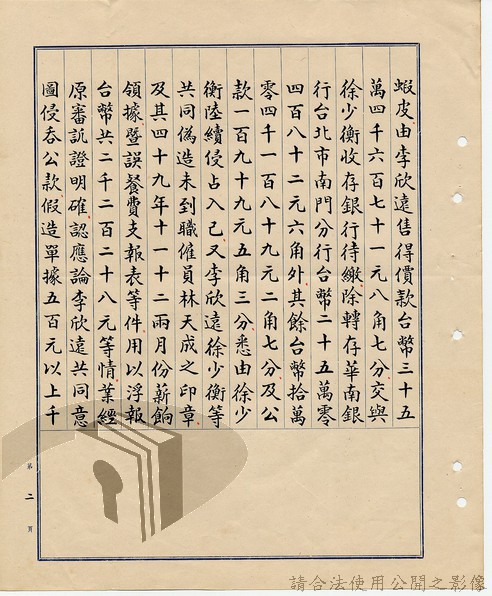 蝦皮由李欣遠售得價款台幣三十五
萬四千六百七十一元八角七分交與
徐少衡收存銀行待繳除轉存華南銀
行台北市南門分行台幣二十五萬零
四百八十二元六角外其餘台幣拾萬
零四千一百八十九元二角七分及公
款一百九十九元五角三分悉由徐少
衡陸續侵占入己又李欣遠徐少衡等
共同偽造未到職僱員林天成之印章
及其四十九年十一十二兩月份薪餉
領據暨誤餐費支報表等件用以浮報
台幣共二千二百二十八元等情業經
原審訊證明確認應論李欣遠共同意
圖侵吞公款假造單據五百元以上千
第二頁
請合法使用公開之影像